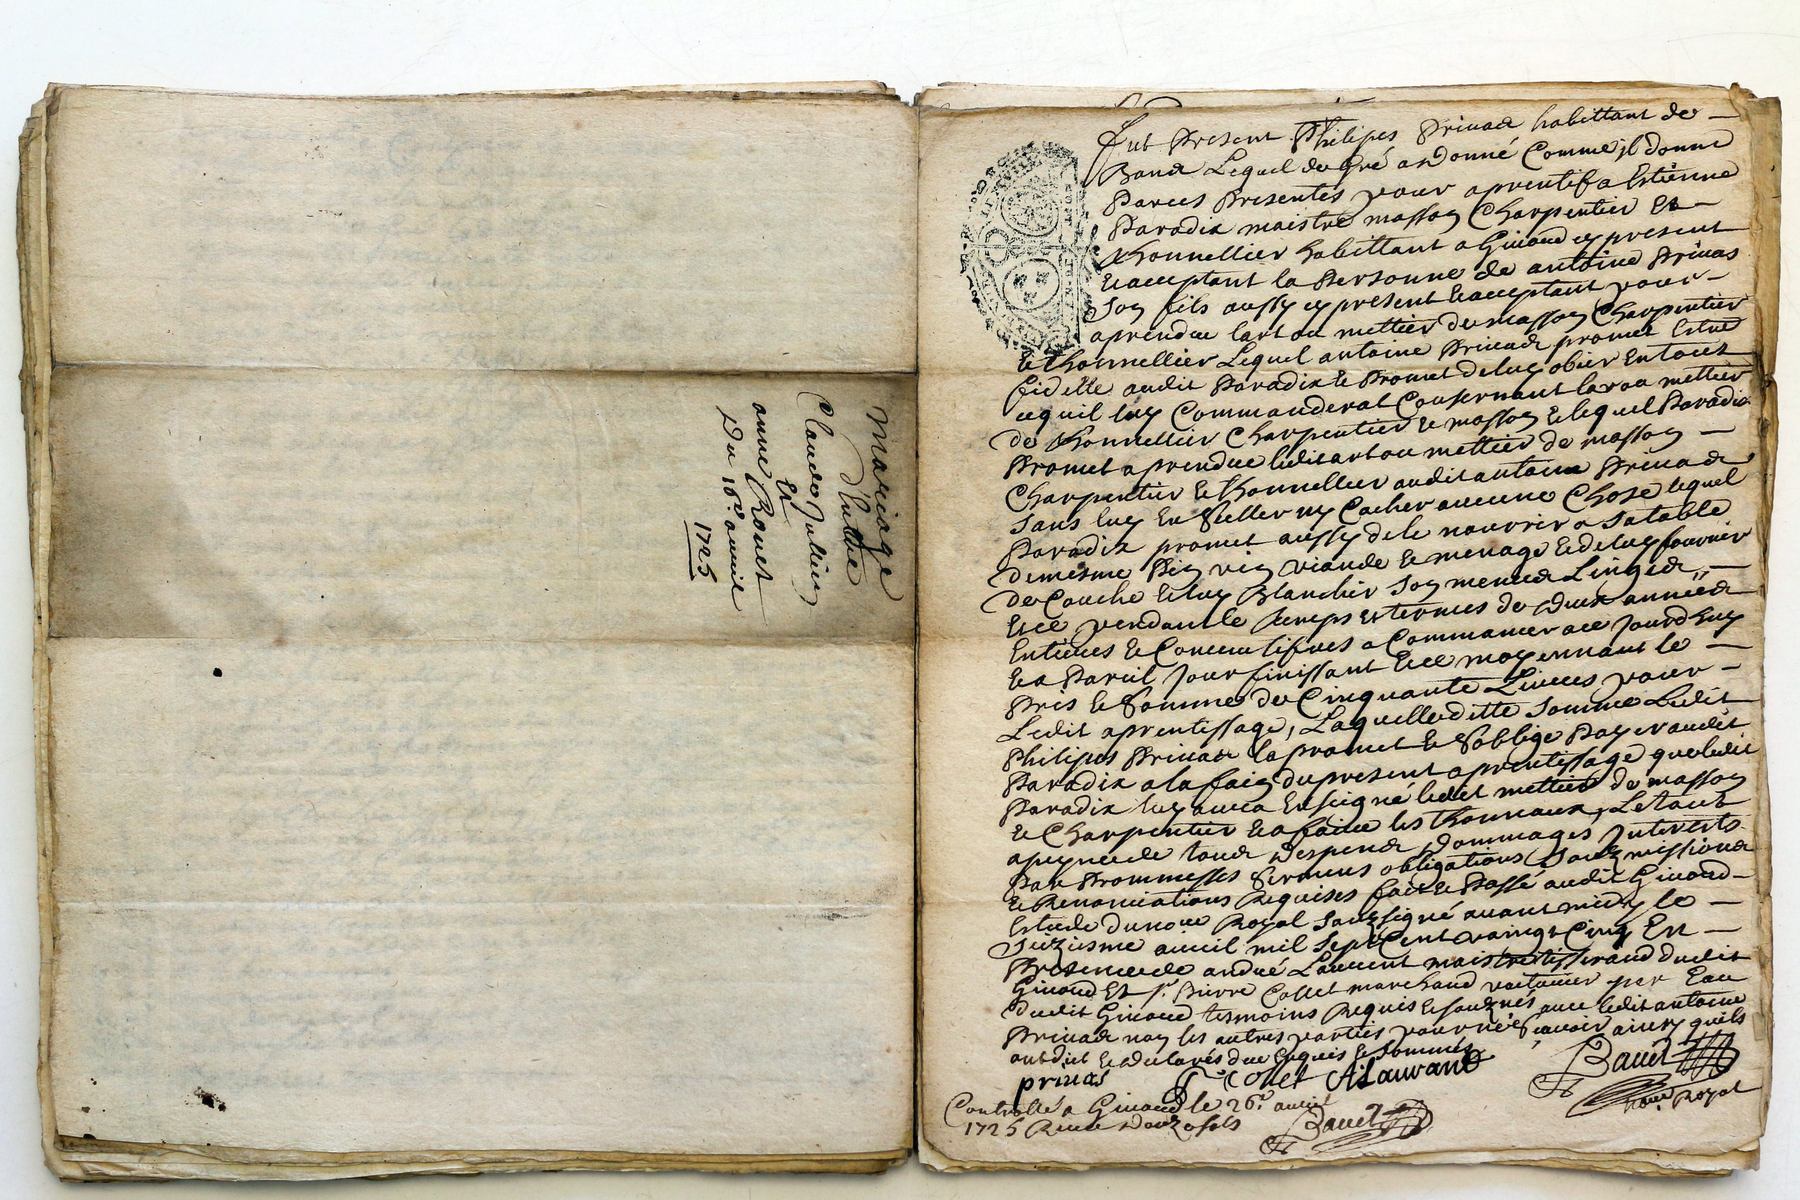 mariage
d'entre
Claude Jullien
Et
anne Rouet
Du 16e auril
1725
Fut Present Philipes Priuat habittant de
Lequel de Gré a donné Comme jl donne
Parces Presentes pour aprentif a Estienne
Paradix maistre masson Charpentier Et
thonnellier habittant a Giuord cy present
Et acceptant la Personne de antoine Priuas
son fils aussy cy present Et acceptant pour
aprendre lart ou mettier de masson Charpentier
Et thonnellier Lequel antoine Priuat promet Estre
fidelle audit Paradix Et Promet de luy obier En tout
cequil luy Commanderat Consernant lart ou mettier
de thonnellier Charpentier Et masson Et lequel Paradix
Promet aprendre ledit art ou mettier de masson
Charpentier Et thonnellier audit antoine Priuat
sans luy En Seller ny Cacher aucune Chose lequel
Paradix promet aussy de le nourrir a sa table
de mesme Pin vin viande Et menage Et de luy fournir
de Couche Et luy Blanchir son menud Linged
Et ce pendant le temps Et termes de deux année
Entieres Et Concecutifues a Commancer ace jourdhuy
Et a Pareil jour finissant Et ce moyennant le
Pris Et Somme de Cinquante Liures pour
Ledit aprentissage, Laquelle ditte somme Ledit
Philipes Priuat la promet Et Soblige Payer audit
Paradix a la fain du present aprentissage que ledit
Paradix luy aura Enseigné ledit mettier de masson
Et Charpentier Et a faire les thonneaux, Le tout
a peyne de tous despend dommages Interests
Par Prommesses Sermens obligations Soubmissions
Et Renonciations Requises fait Et Passé audit Giuord
Estude du nore Royal Soubsigné auant midy le
Seizieme auril mil Sept Cent vaingt Cinq En
Presence de andré Laurent maistre tisserand dudit
Giuord Et Sr. Pierre Collet marchand voiturier par Eau
dudit Giuord tesmoins Requis Et soubznés auec ledit antoine
Priuat non les autres parties pour ne Scauoir ainsy quils
ont dit Et declarés de ce Enquis Et Sommés
priuas Collet A Laurant Bauet
nore Royal
Controllé a Giuord le 26e. auril
1725 Receu douze sols Bauet